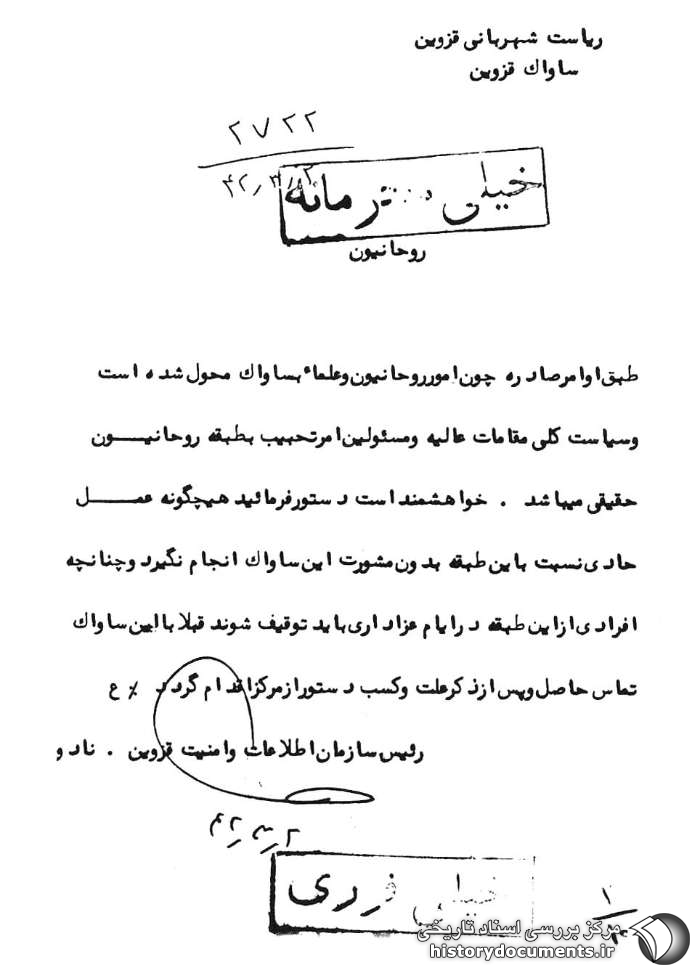 ریاست شهربانی قزوین
ساواك قزوین
۲۷۲۲
۴۲٫۳٫۲
خیلی محرمانه
روحانیون
طبق اوامر صادره چون امور روحانیون و علماء بساواك محول شده است
و سیاست کلی مقامات عالیه و مسئولین امر تحبیب بطبقه روحانیــون
حقیقی میباشد . خواهشمند است دستور فرمائید هیچگونه عمــل
حادی نسبت باین طبقه بدون مشورت این ساواك انجام نگیرد و چنانچه
افرادی از این طبقه در ایام عزاداری باید توقیف شوند قبلا با این ساواك
تماس حاصل و پس از ذکر علت و کسب دستور از مرکز اقدام گردد ٪ ع
رئیس سازمان اطلاعات و امنیت قزوین . نادو
۴۲٫۳٫۲
خیلی فوری
مرکز بررسی اسناد تاریخی
historydocuments.ir